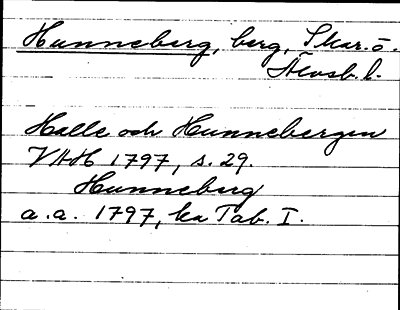 Hunneberg, berg, Skar. o.
Älvsb. l.
Halle och Hunnebergen
VHH 1797, s. 29.
Hunneberg
a. a. 1797, ka Tab. I.